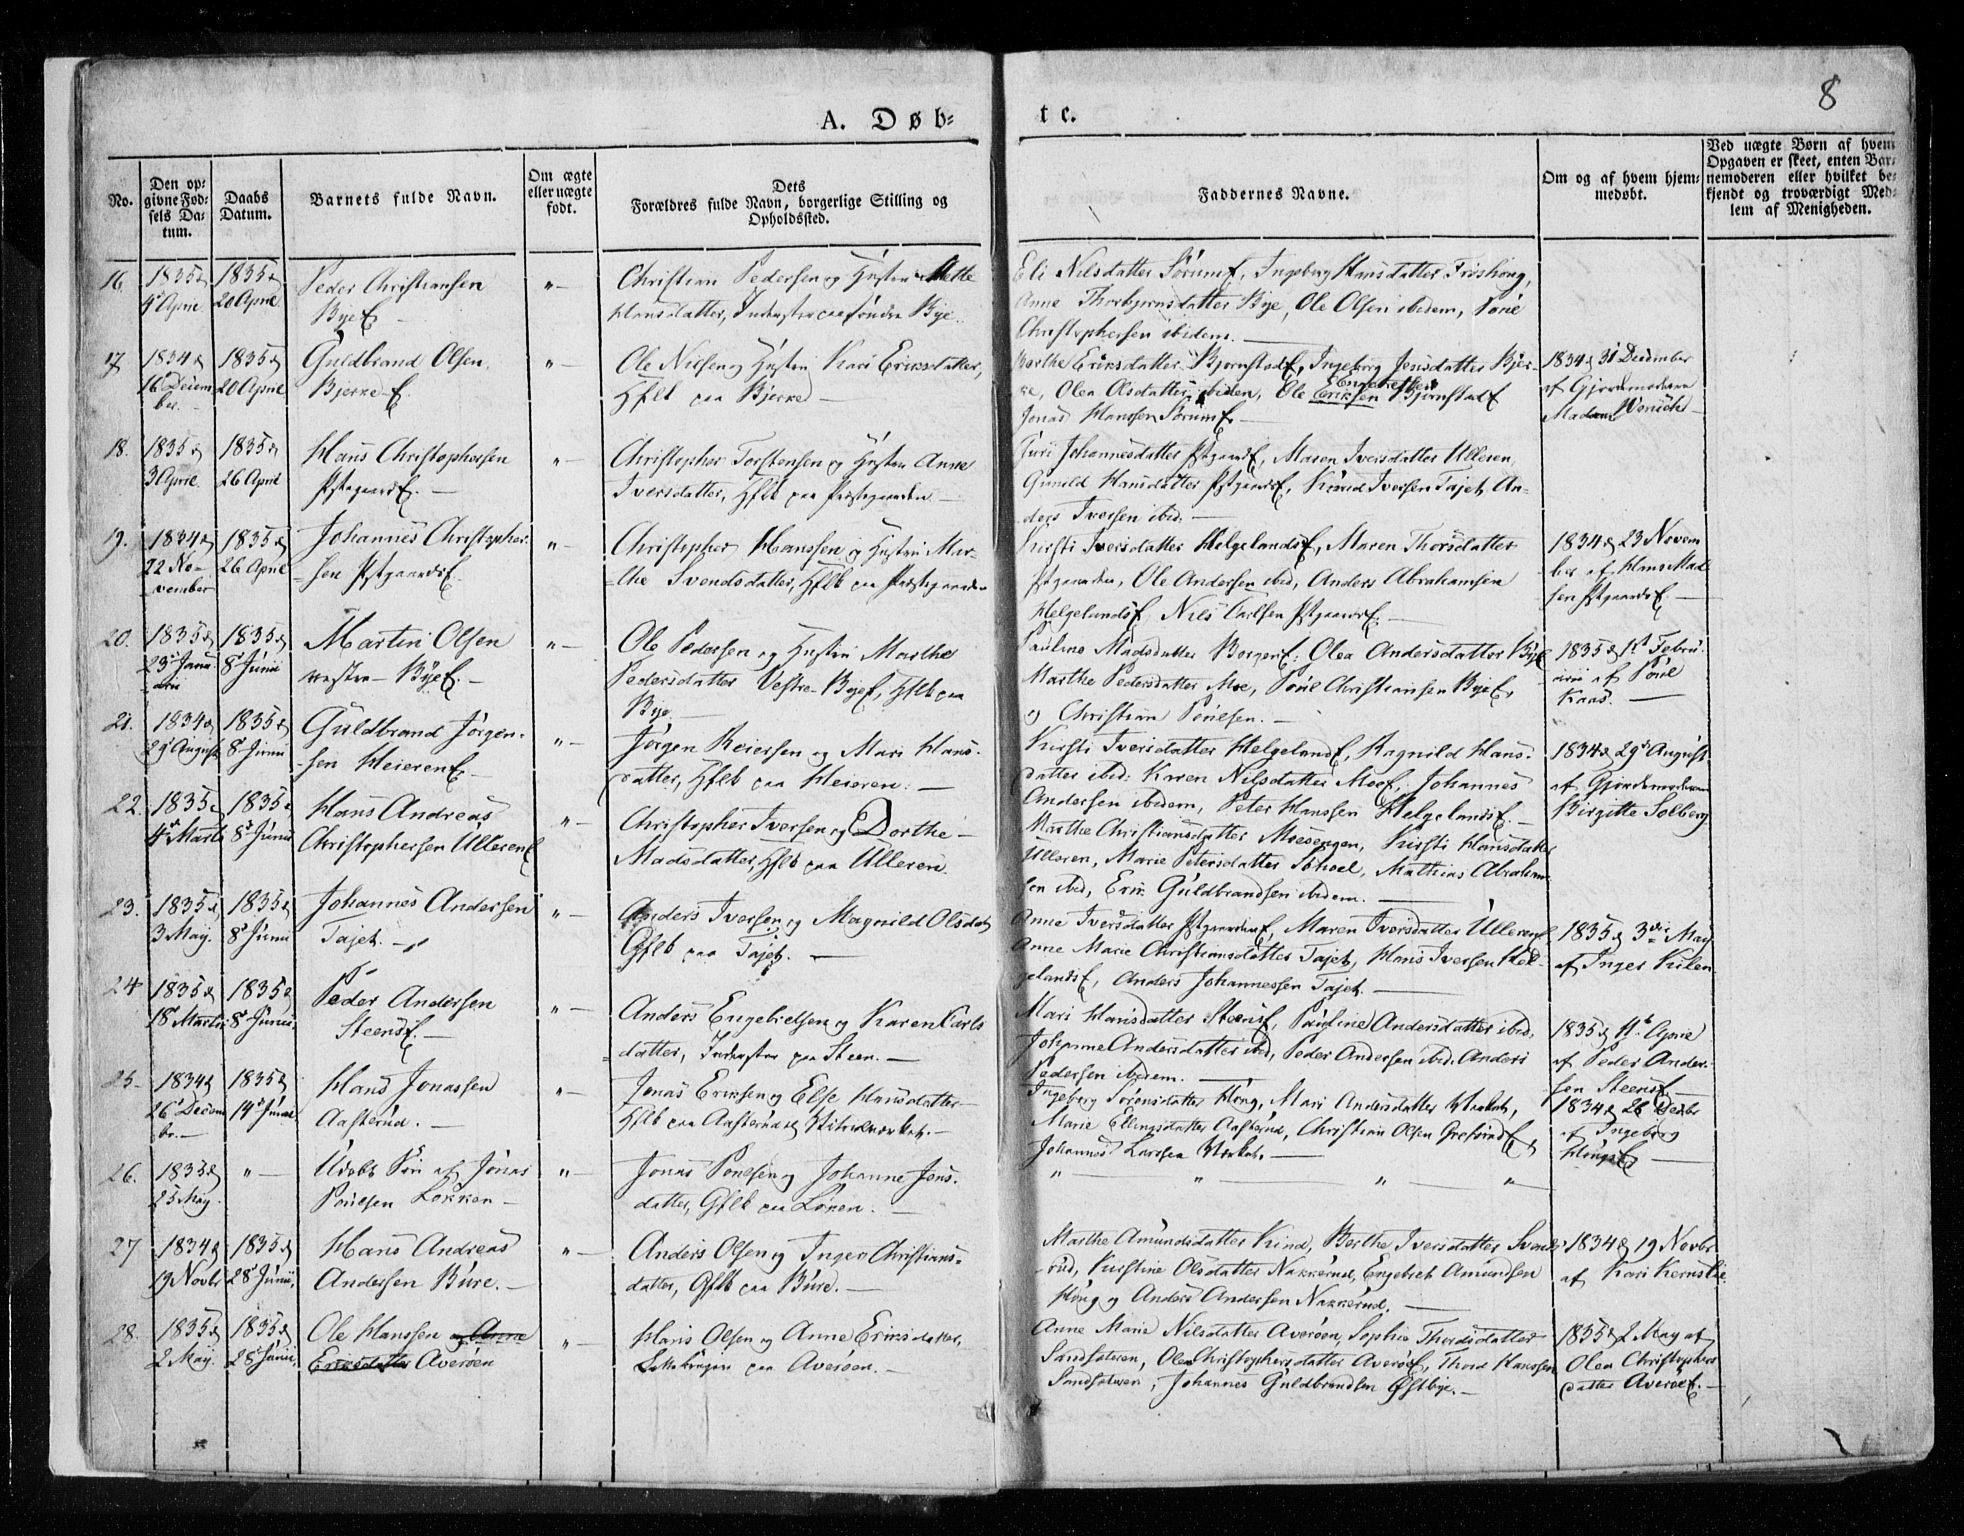 8
A. Døb-
te.
No.
Den op-
givne Fød-
sels Da-
tum.
Daabs
Datum.
Barnets fulde Navn.
Om ægte
eller uægte
født.
Dets
Forældres fulde Navn, borgerlige Stilling og
Opholdssted.
Faddernes Navne.
Om og af hvem hjem-
medøbt.
Ved uægte Børn af hvem
Opgaven er skeet, enten Bar-
nemoderen eller hvilket be-
kjendt og troværdigt Med-
lem af Menigheden.
16.
1835
4 April
1835
20 April
Peder Christiansen
Bye
"—
Christian Pedersen og Hustru Mette
Hansdatter, Inderster paa søndre Bye.
Eli Nilsdatter Sørum, Ingeborg Hansdatter Frøshoug,
Anne Thorbjørnsdatter Bye, Ole Olsen ibidem, Poul
Christophersen ibidem. —
17
1834
16 Decem
ber. —
1835
20 April
Guldbrand Olsen
Bjerke
"—
Ole Nielsen og Hustru Kari Eriksdatter,
Gflk paa Bjerke —
Berthe Eriksdatter Bjørnstad, Ingeborg Jensdatter Bjer-
ke, Olea Olsdatter ibidem, Ole Eriksen Bjørnstad
Engebretsen
Jonas Hanssen Sørum
1834 31 December
af Gjordemoderen
Madam Wenich —
18.
1835
3 April
1835
26 April
Hans Christophersen
Pstgaard. —
"—
Christopher Torstensen og Hustru Anne
Iversdatter, Hflk paa Præstegaarden —
Johannesdatter Pstgaard, Maren Iversdatter Ulleren,
Gunild Hansdatter Pstgaard, Knud Iversen Tajet, An-
ders Iversen ibid. —
19.
1834
22 No-
vember
1835
26 April
Johannes Christopher-
sen Pstgaard.
"—
Christopher Hanssen og Hustru Mar-
the Svendsdatter, Hflk paa Præstegaarden
Kirsti Iversdatter Helgeland, Maren Thorsdatter
Pstgaarden, Ole Andersen ibid, Anders Abrahamsen
Helgeland, Nils Carlsen Pstgaard. —
1834 23 Novem
ber af Hans Mad
sen Pstgaard. —
20.
1835
29 Janu-
arii
1835
8 Junii
Martin Olsen
vestre Bye. —
"—
Ole Pedersen og Hustru Marthe
Pedersdatter Vestre-Bye, Hflk paa
Bye. —
Pauline Madsdatter Borgen, Olea Andersdatter Bye
Marthe Pedersdatter Moe, Poul Christiansen Bye,
og Christian Poulsen. —
1835 1st Febru-
arii af Poul
Kaas. —
21.
1834
29 August
1835
8 Junii
Guldbrand Jørgen-
sen Heieren —
"—
Jørgen Reiersen og Mari Hans-
datter, Gflk paa Heieren. —
Kirsti Iversdatter Helgeland, Ragnild Hans-
datter ibid: Karen Nilsdatter Moe, Johannes
Andersen ibidem, Peter Hanssen Helgeland. —
1834 29 August
af Gjordemoderen
Birgitte Solberg
22.
1835
4 Marts
1835
8 Junii
Hans Andreas
Christophersen Ulleren
"—
Christopher Iversen og Dorthe
Madsdatter, Hflk paa Ulleren.
Marthe Christiansdatter Moesengen, Kirsti Hansdatter
Ulleren, Marie Petersdatter Sohoel, Mathias Abraham-
sen ibid, Erik Guldbrandsen ibidem. —
23.
1835
3 May.
1835
8 Junii
Johannes Andersen
Tajet. —
"—
Anders Iversen og Magnild Olsdat
Gflk paa Tajet. —
Anne Iversdatter Pstgaarden, Maren Iversdatter Ulleren
Anne Marie Christiansdatter Tajet, Hans Iversen Hel-
geland, Anders Johannessen Tajet. —
1835 3die May
af Inger Kilen
24
1835
18 Martii
1835
8 Junii
Peder Andersen
Steens. —
"—
Anders Engebretsen og Karen Carls
datter, Inderster paa Steen. —
Mari Hansdatter Steens, Pauline Andersdatter ibid,
Johanne Andersdatter ibid, Peder Andersen ibid, Anders
Pedersen ibidem. —
1835 11 April
af Peder Ander-
sen Steens
25.
1834
26 Decem
br. —
1835
14 Junii
Hans Jonassen
Aasterud. —
"—
Jonas Eriksen og Else Hansdatter
Hflk paa Aasterud Vitriolværket. —
Ingeborg Sørensdatter Houg, Mari Andersdatter Værket,
Marie Ellingsdatter Aasterud, Christian Olsen Grefsrud,
Johannes Larssen Værket. —
1834 28 Decbr
af Ingeborg
Hougs —
26.
1835
25 May.
"—
Udøbt Søn af Jonas
Poulsen Løkken —
"
Jonas Poulsen og Johanne Jons-
datter, Gflk paa Løken. —
" — " — " — "
27
1834
19 Novbr
1835
28 Junii,
Hans Andreas
Andersen Bure. —
"—
Anders Olsen og Inger Christians-
datter, Gflk paa Bure. —
Marthe Amundsdatter Kind, Berthe Iversdatter Svends-
rud, Kirstine Olsdatter Nakkerud, Engebret Amundsen
Houg og Anders Andersen Nakkerud. —
1834 19 Novbr
af Kari Kernslie
28.
1835
2 May.
1835
28 Junii,
Ole Hanssen og Anne
Eriksdatter Averøen
"—
Hans Olsen og Anne Eriksdatter,
paa Averøen. —
Anne Marie Nilsdatter Averøen, Sophie Thordsdatter
Sandsateren, Olea Christophersdatter Averøe, Thord Hanssen
Sandsateren, Johannes Guldbrandsen Østbye. —
1835 2 May af
Olea Christophers
datter Averøe. —